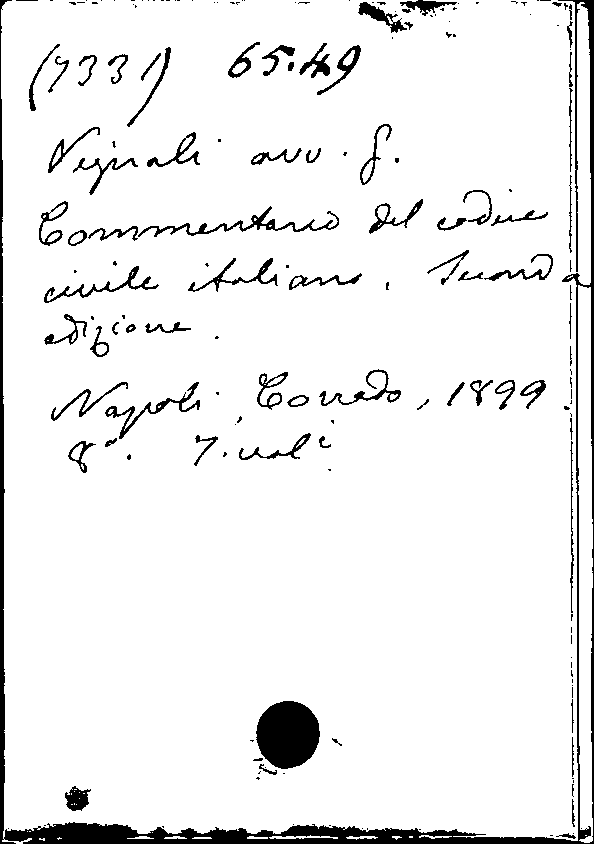 (7331) 65.49
Vignali avv. G.
Commentario del codice
civile italiano. Seconda
edizione.
Napoli, Corrado, 1899.
8°. 7. voli